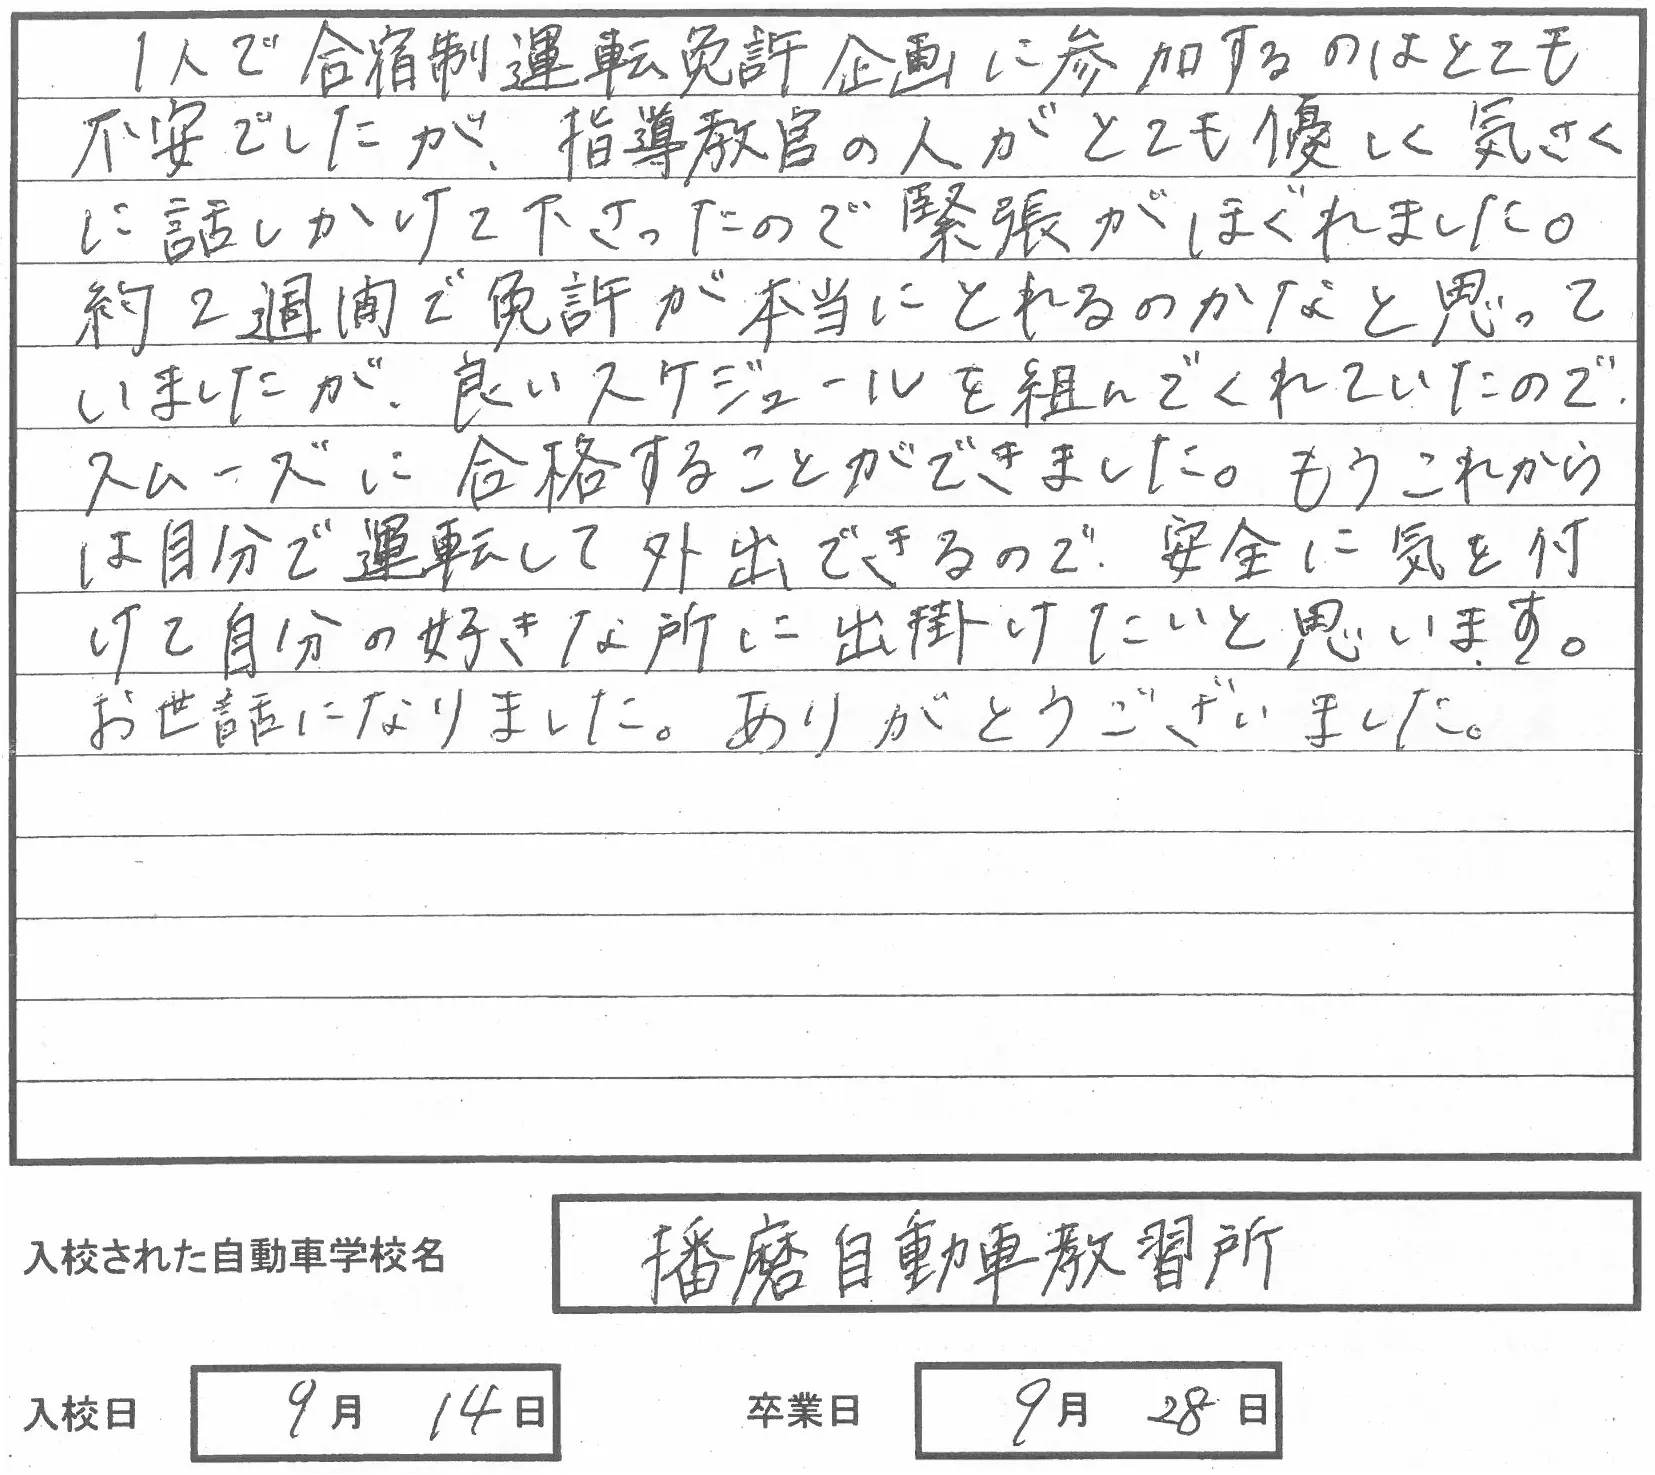 1人で合宿制運転免許企画に参加するのはとても
不安でしたが、指導教官の人がとても優しく気さく
に話しかけて下さったので緊張がほぐれました。
約2週間で免許が本当にとれるのかなと思って
いましたが、良いスケジュールを組んでくれていたので、
スムーズに合格することができました。もうこれから
は自分で運転して外出できるので、安全に気を付
けて自分の好きな所に出掛けたいと思います。
お世話になりました。ありがとうございました。
入校された自動車学校名 播磨自動車教習所
入校日 9月 14日 卒業日 9月 28日